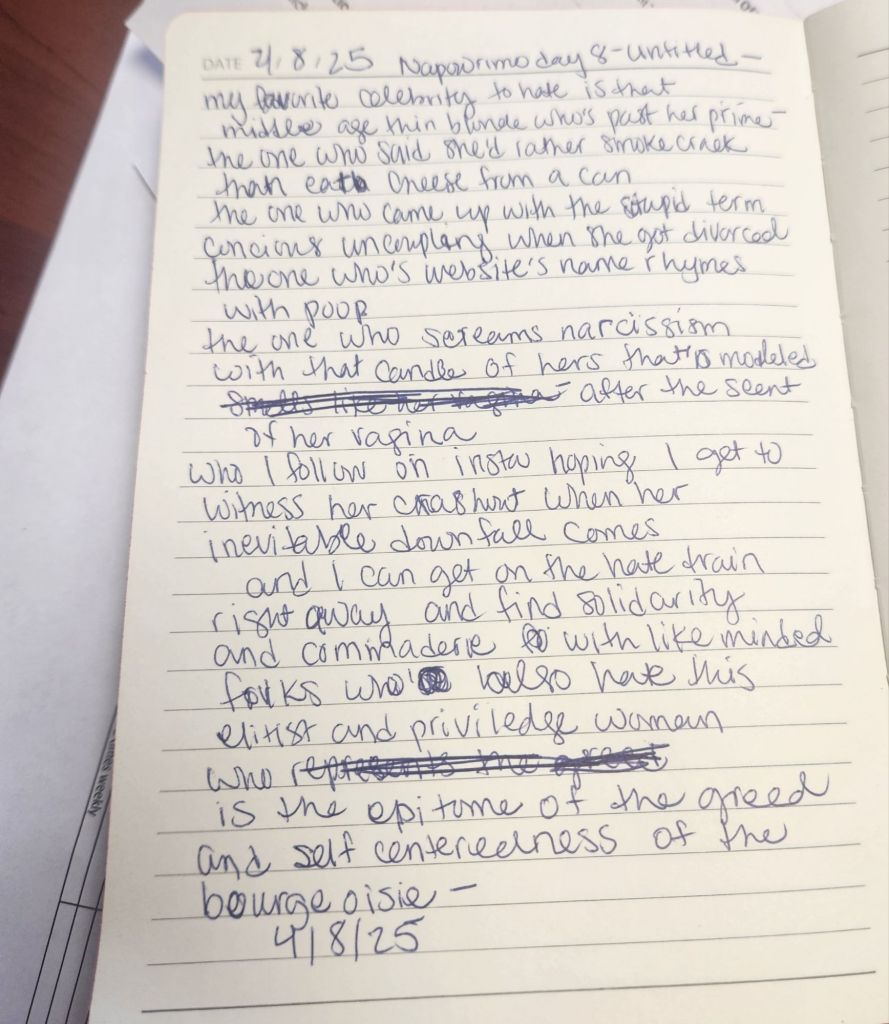 DATE 4/8/25 Napowrimo day 8 - untitled -
my favorite celebrity to hate is that
middle age thin blonde who's past her prime -
the one who said she'd rather smoke crack
than eat cheese from a can
the one who came up with the stupid term
concious uncoupling when she got divorced
the one who's website's name rhymes
with poop
the one who screams narcissism
with that candle of hers that's modeled
smells like her vagina - after the scent
of her vagina
who I follow on insta hoping I get to
witness her crashout when her
inevitable downfall comes
and I can get on the hate train
right away and find solidarity
and commraderie with like minded
folks who also hate this
elitist and priviledge woman
who represents the greed
is the epitome of the greed
and self centeredness of the
bourgeoisie -
4/8/25
times weekly